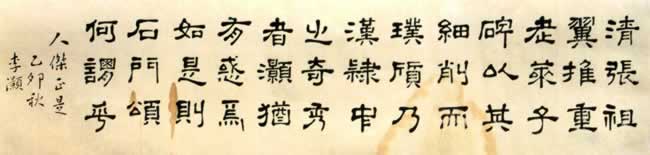 清張祖
翼推重
老萊子
碑以其
細削而
璞碩乃
漢隸中
之奇秀
者灝猶
有惑焉
如是則
石門頌
何謂乎
人傑正是
乙卯秋
李灝